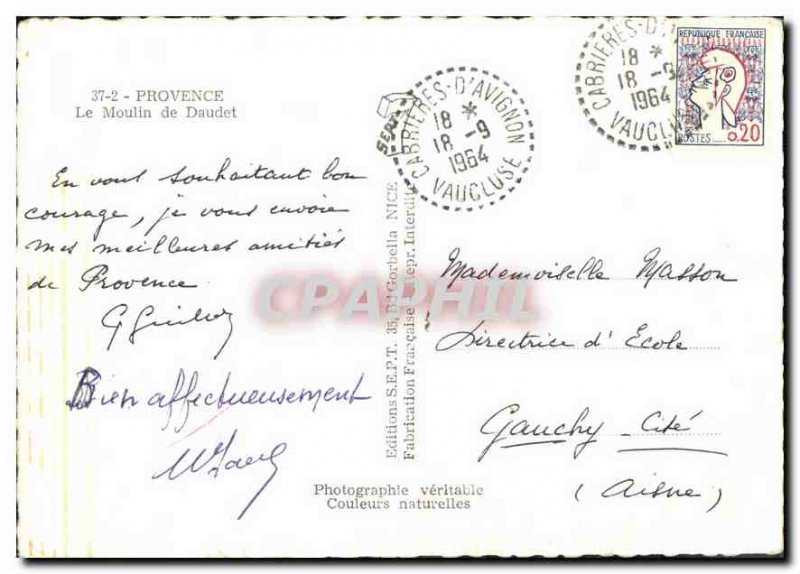 37-2 - PROVENCE
Le Moulin de Daudet
En vous souhaitant bon
courage, je vous envoie
mes meilleures amitiés
de Provence
Bien affectueusement
Editions S.E.P.T. 35, Bd Gorbella NICE
Fabrication Française Repr. Interdite
SEPT
CABRIERES-D'AVIGNON
18 *
18 -9
1964
VAUCLUSE
CABRIERES-D'A
18 *
18 -9
1964
VAUCLUSE
REPUBLIQUE FRANÇAISE
POSTES
0,20
Mademoiselle Masson
Directrice d'Ecole
Gauchy - Cité
(Aisne)
Photographie véritable
Couleurs naturelles
CPAPHIL